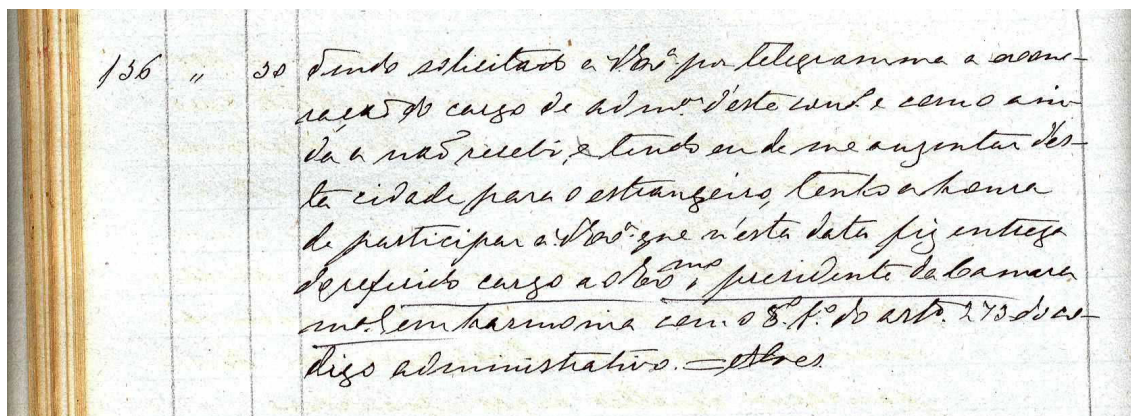 136 " 30 Tendo solicitado a V. Exª por telegramma a exone-
ração do cargo de admor. d'este conc.º e como ain-
da a não recebi, e tendo eu de me auzentar des-
ta cidade para o estrangeiro, tenho a honra
de participar a V. Exª que n'esta data fiz entrega
do referido cargo ao Exmo presidente da Camara
mal. em harmonia com o § 1.º do arto. 273 do co-
digo administrativo. =